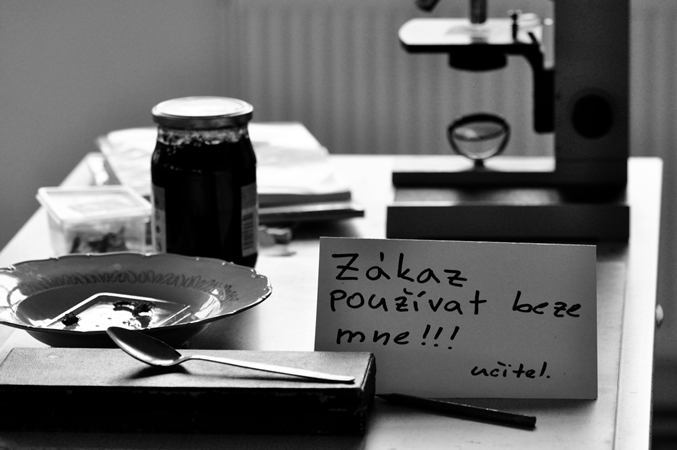 Zákaz
používat beze
mne!!!
učitel.